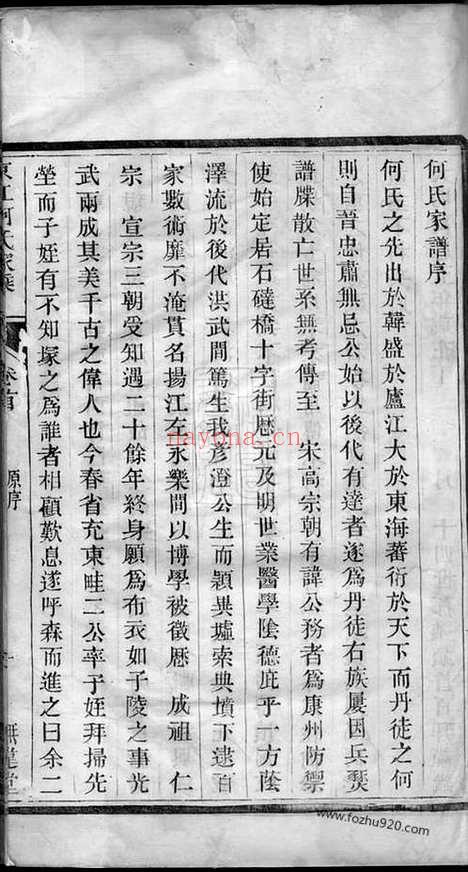 何氏家譜序
何氏之先出於韓盛於廬江大於東海蕃衍於天下而丹徒之何
則自晉忠肅無忌公始以後代有達者遂爲丹徒右族屢因兵燹
譜牒散亡世系無考傳至　宋高宗朝有諱公務者爲康州防禦
使始定居石䃮橋十字街歴元及明世業醫學陰德庇乎一方蔭
澤流於後代洪武間篤生我彥澄公生而穎異墳索典墳下逮百
家數術靡不淹貫名揚江左永樂間以博學被徵歴　成祖　仁
宗　宣宗三朝受知遇二十餘年終身願爲布衣如子陵之事光
武兩成其美千古之偉人也今春省充東畦二公率予姪拜掃先
塋而子姪有不知塚之爲誰者相顧歎息遂呼森而進之曰余二
東江何氏家乘
卷首
原序
一
nayona.cn
www.fozhu920.com